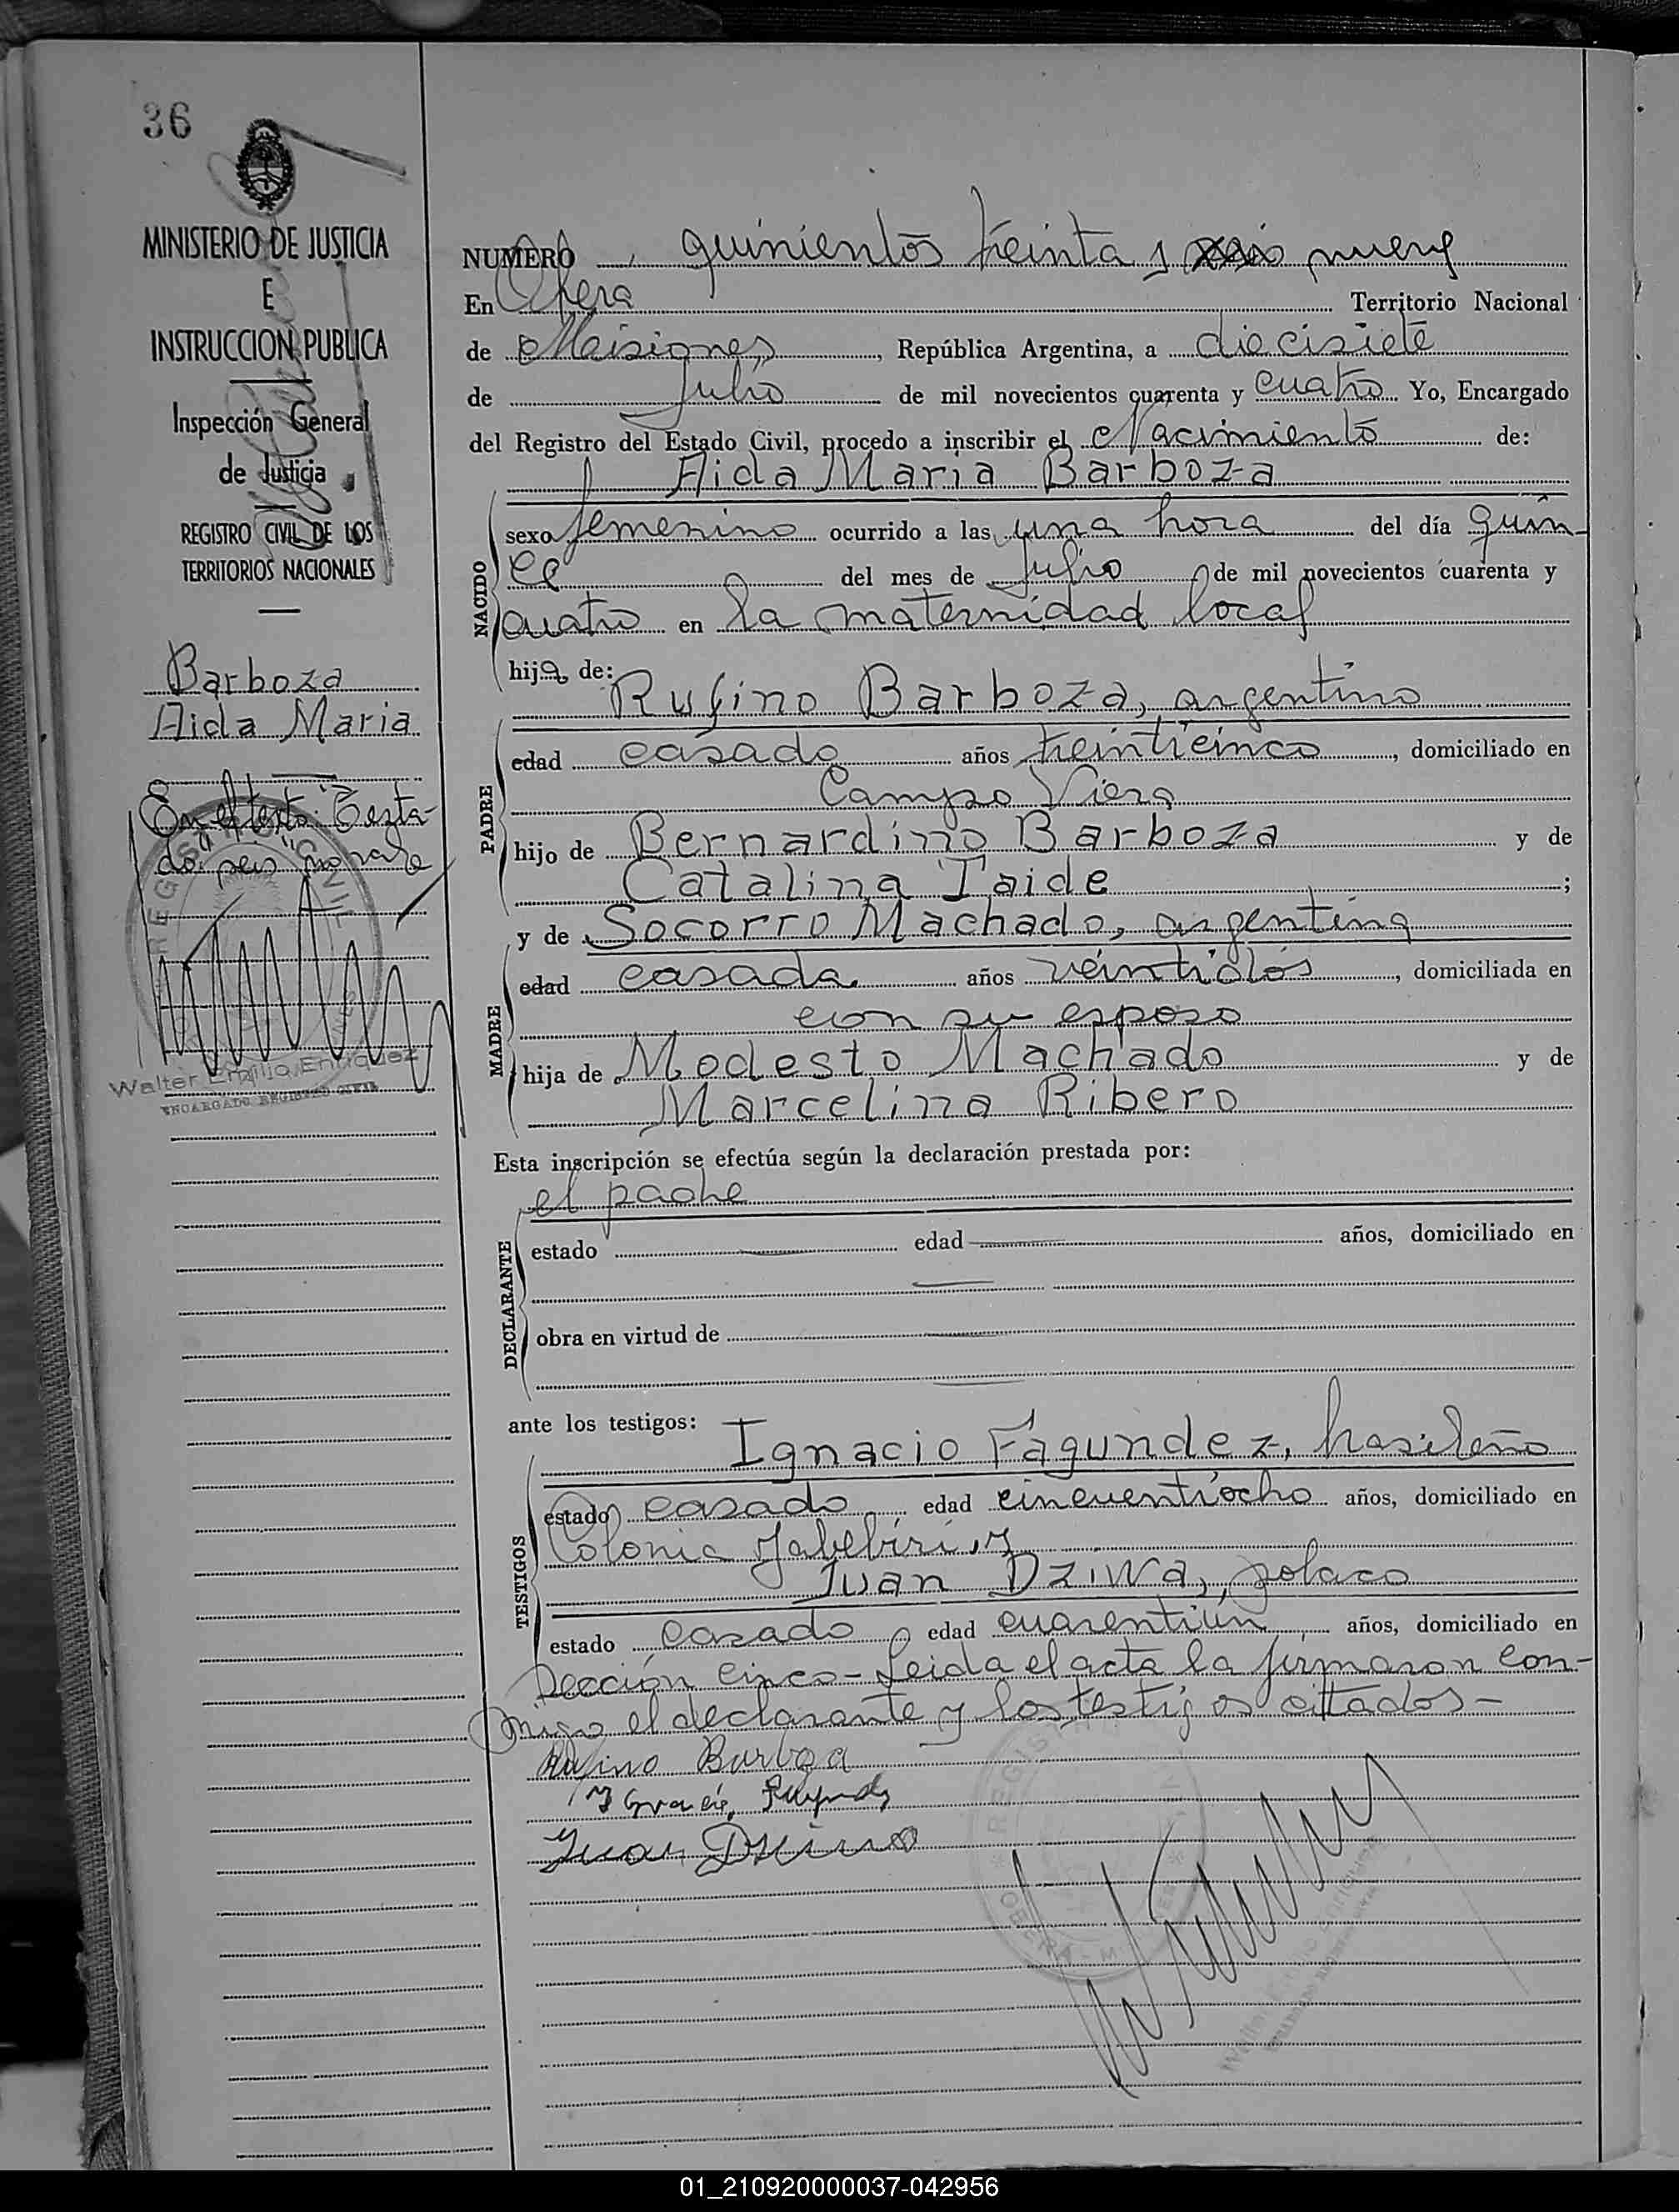 36
MINISTERIO DE JUSTICIA
E
INSTRUCCION PUBLICA
Inspección General
de Justicia
REGISTRO CIVIL DE LOS
TERRITORIOS NACIONALES
Barboza
Aida Maria
En el texto: Testa-
do: "seis" no vale
REGISTRO CIVIL
Walter Emilio Enriquez
ENCARGADO REGISTRO CIVIL
NUMERO quinientos treinta y seis nueve
En Obera Territorio Nacional
de Misiones, República Argentina, a diecisiete
de Julio de mil novecientos cuarenta y cuatro Yo, Encargado
del Registro del Estado Civil, procedo a inscribir el Nacimiento de:
Aida Maria Barboza
NACIDO
sexo femenino ocurrido a las una hora del día quin-
ce del mes de Julio de mil novecientos cuarenta y
cuatro en la maternidad local
hija de:
Rufino Barboza, argentino
PADRE
edad casado años treinticinco, domiciliado en
Campo Viera
hijo de Bernardino Barboza y de
Catalina Taide;
y de Socorro Machado, argentina
MADRE
edad casada años veintidós, domiciliada en
con su esposo
hija de Modesto Machado y de
Marcelina Ribero
Esta inscripción se efectúa según la declaración prestada por:
el padre
DECLARANTE
estado edad años, domiciliado en
obra en virtud de
ante los testigos:
Ignacio Fagundez, brasileño
TESTIGOS
estado casado edad cincuentiocho años, domiciliado en
Colonia Yabebiri, y
Juan Dziwa, polaco
estado casado edad cuarentiun años, domiciliado en
Sección cinco - Leida el acta la firmaron con-
migo el declarante y los testigos citados -
Rufino Barboza
Juan
REGISTRO CIVIL
OBERA - M.
Walter Emilio Enriquez
01_210920000037-042956